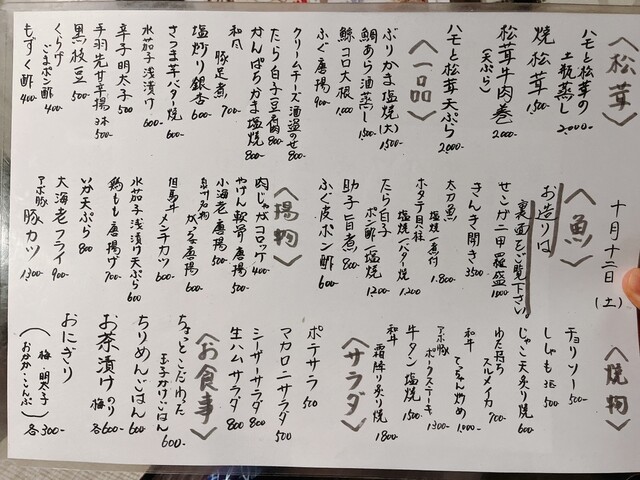 十月十二日(土)
〈松茸〉
ハモと松茸の
土瓶蒸し 2,000-
焼松茸 1,500-
松茸牛肉巻 2,000-
(天ぷら)
ハモと松茸天ぷら 2,000-
〈一品〉
ぶりかま塩焼(大) 1,500-
鯛あら酒蒸し 1,500-
鯨コロ大根 1,000-
ふぐ唐揚 900-
クリームチーズ酒盗のせ 800-
たら白子豆腐 800-
かんぱちかま塩焼 800-
和風
豚足煮 700-
塩炒り銀杏 600-
さつま芋バター焼 600-
水茄子浅漬け 600-
辛子明太子 500
手羽先甘辛揚 3本 500-
黒枝豆 500
くらげ
ごまポン酢 400
もずく酢 400
〈魚〉
お造りは
裏面をご覧下さい
せこがに甲羅盛 1,800
きんき開き 3,500
太刀魚
塩焼・煮付 1,800-
ホタテ貝柱
塩焼・バター焼 1,200
たら白子
ポン酢・塩焼 1,200-
助子旨煮 800-
ふぐ皮ポン酢 600
〈揚物〉
肉じゃがコロッケ 400
やげん軟骨唐揚 500
小海老唐揚 500
がっちょ唐揚 600
但馬牛
メンチカツ 600
水茄子浅漬天ぷら 600
鶏もも唐揚げ 700-
いか天ぷら 800
大海老フライ 900-
アボ豚
豚カツ 1,300
〈焼物〉
チョリソー 500-
ししゃも 3尾 500
じゃこ天炙り焼 600
わた持ち
スルメイカ 700
和牛
てっちゃん炒め 1,000-
アボ豚
ポークステーキ 1300-
牛タン塩焼 1500
和牛
霜降り炙り焼 1800
〈サラダ〉
ポテサラ 500
マカロニサラダ 500
シーザーサラダ 800
生ハムサラダ 800
〈お食事〉
ちょっとこだわった
玉子かけごはん 600-
ちりめんごはん 600
お茶漬け のり 600-
梅 各600
おにぎり
(梅・明太子
おかか・こんぶ) 各300-